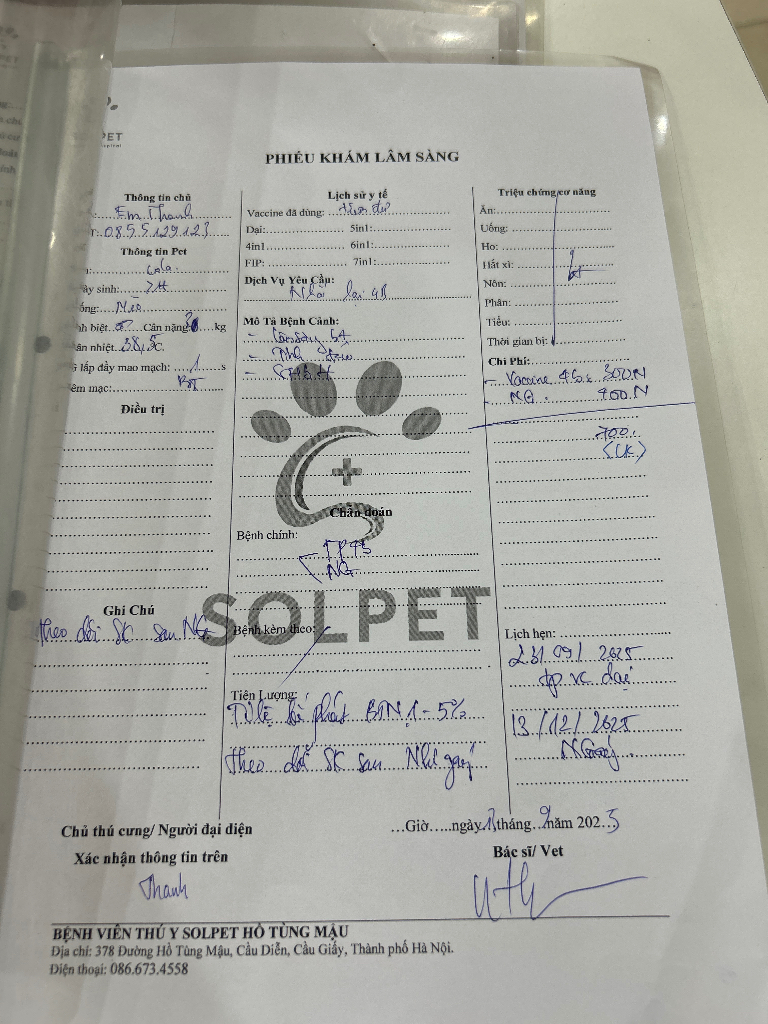 PET
PHIẾU KHÁM LÂM SÀNG
Thông tin chủ
Em Thanh
0855129123
Thông tin Pet
LaLa
ày sinh: 7H
ống: Mèo
h biệt Cân nặng 3 kg
ân nhiệt 38,5c
i lấp đầy mao mạch: 1 s
êm mạc: BT
Điều trị
Ghi Chú
theo dõi SK sau NG
Lịch sử y tế
Vaccine đã dùng:
Dại: 5in1:
4in1 6in1:
FIP: 7in1:
Dịch Vụ Yêu Cầu:
Nhắc lại 4B
Mô Tả Bệnh Cảnh:
Chẩn đoán
Bệnh chính:
NG
SOLPET
Bệnh kèm theo:
Tiên Lượng:
Tỷ lệ bị phát 1-5%
theo dõi SK sau
Triệu chứng cơ năng
Ăn:
Uống:
Ho:
Hắt xì:
Nôn:
Phân:
Tiểu:
Thời gian bị:
Chi Phí:
- Vaccine 4G: 300N
- NG. 400N
700.
(CK)
Lịch hẹn:
23/09/2025
vc dại
13/12/2025
Chủ thú cưng/ Người đại diện
Xác nhận thông tin trên
Thanh
…Giờ…..ngày 13 tháng 9 năm 2025
Bác sĩ/ Vet
BỆNH VIÊN THÚ Y SOLPET HỒ TÙNG MẬU
Địa chỉ: 378 Đường Hồ Tùng Mậu, Cầu Diễn, Cầu Giấy, Thành phố Hà Nội.
Điện thoại: 086.673.4558